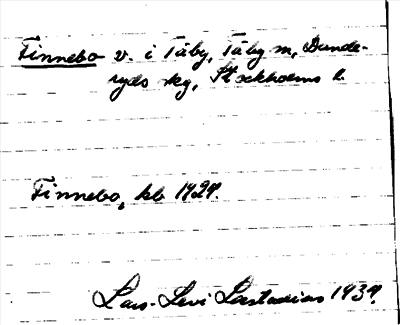 Finnebo v. i Täby, Täby sn, Dande-
ryds skg, Stockholms l.
Finnebo, kb 1929.
Lars-Levi Læstadius 1939.